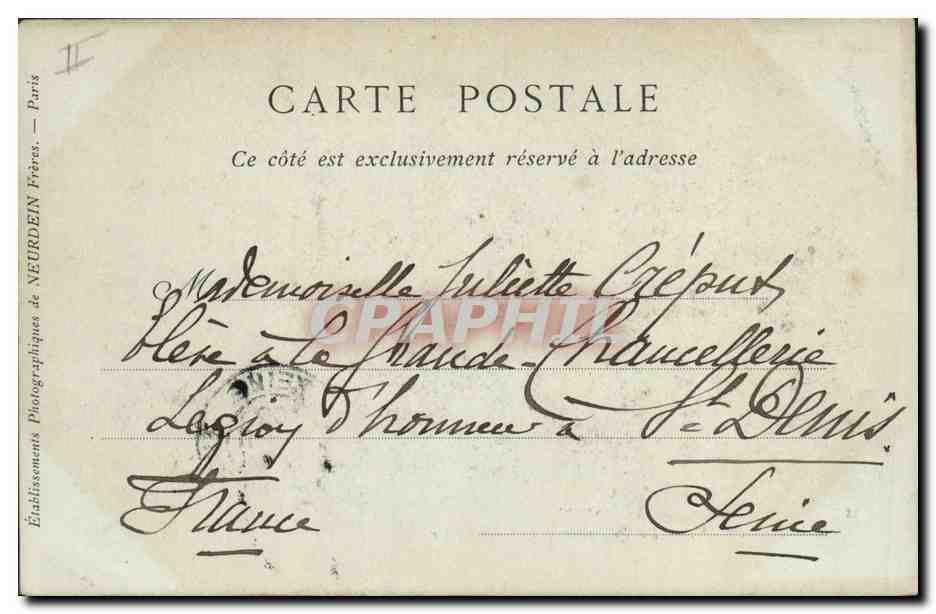 II
CARTE POSTALE
Ce côté est exclusivement réservé à l'adresse
Établissements Photographiques de NEURDEIN Frères. — Paris
Mademoiselle Juliette Crépux
Elève à la Grande-Chancellerie
Legion d'honneur à St Denis
France
Seine
CPAPHIL